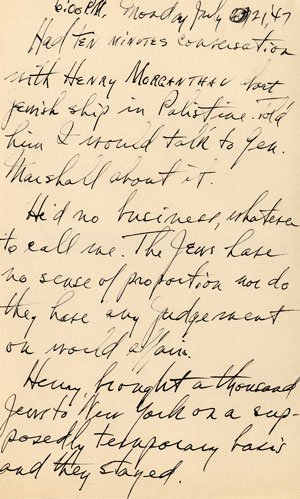 6:00 P.M. Monday July 21, '47
Had ten minutes conversation
with Henry Morganthau about
jewish ship in Palistine. Told
him I would talk to Gen.
Marshall about it.
He'd no business, whatever
to call me. The Jews have
no sense of proportion nor do
they have any judgement
on world affairs.
Henry brought a thousand
Jews to New York on a sup-
posedly temporary basis
and they stayed.